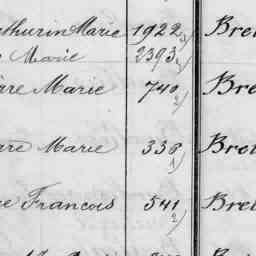 thurin Marie 1922 2) Bre
Marie 2393 2)
re Marie 740 2) Bre
re Marie 338 1) Bre
e Francois 541 2) Bre